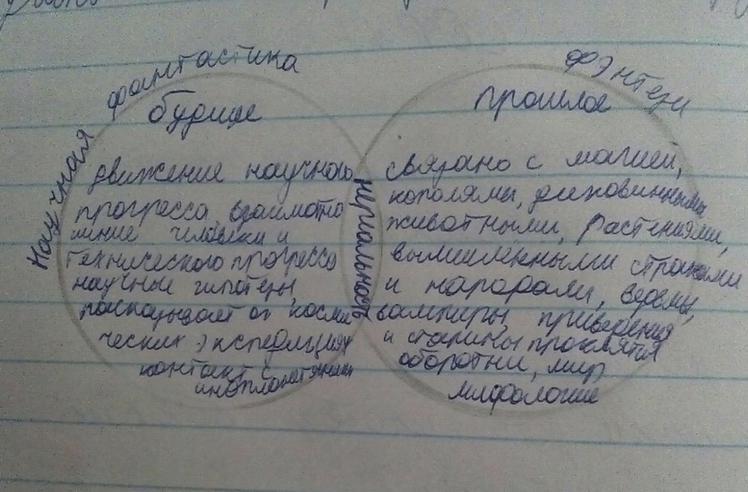 Научная фантастика
будуще
движение научного
прогресса, взаимотно
шение человека и
технического прогресса
научные гипотезы,
рассказывает о косми
ческих экспедициях
контакт с
инопланетянами
нереальность
Фэнтези
прошлое
связано с магией,
королями, диковинными
животными, растениями,
вымышленными странами
и народами, ведьмы,
вампиры, приведения
и старины проклятия
оборотни, мир
мифологии